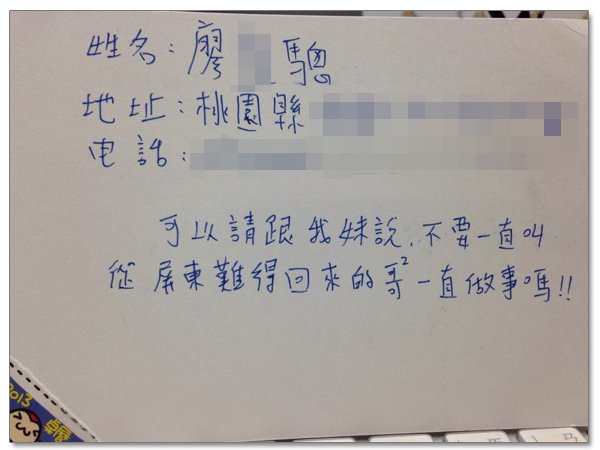 姓名：廖 驄
地址：桃園縣
电話：
可以請跟我妹說,不要一直叫
從屏東難得回來的哥²一直做事嗎!!
2013